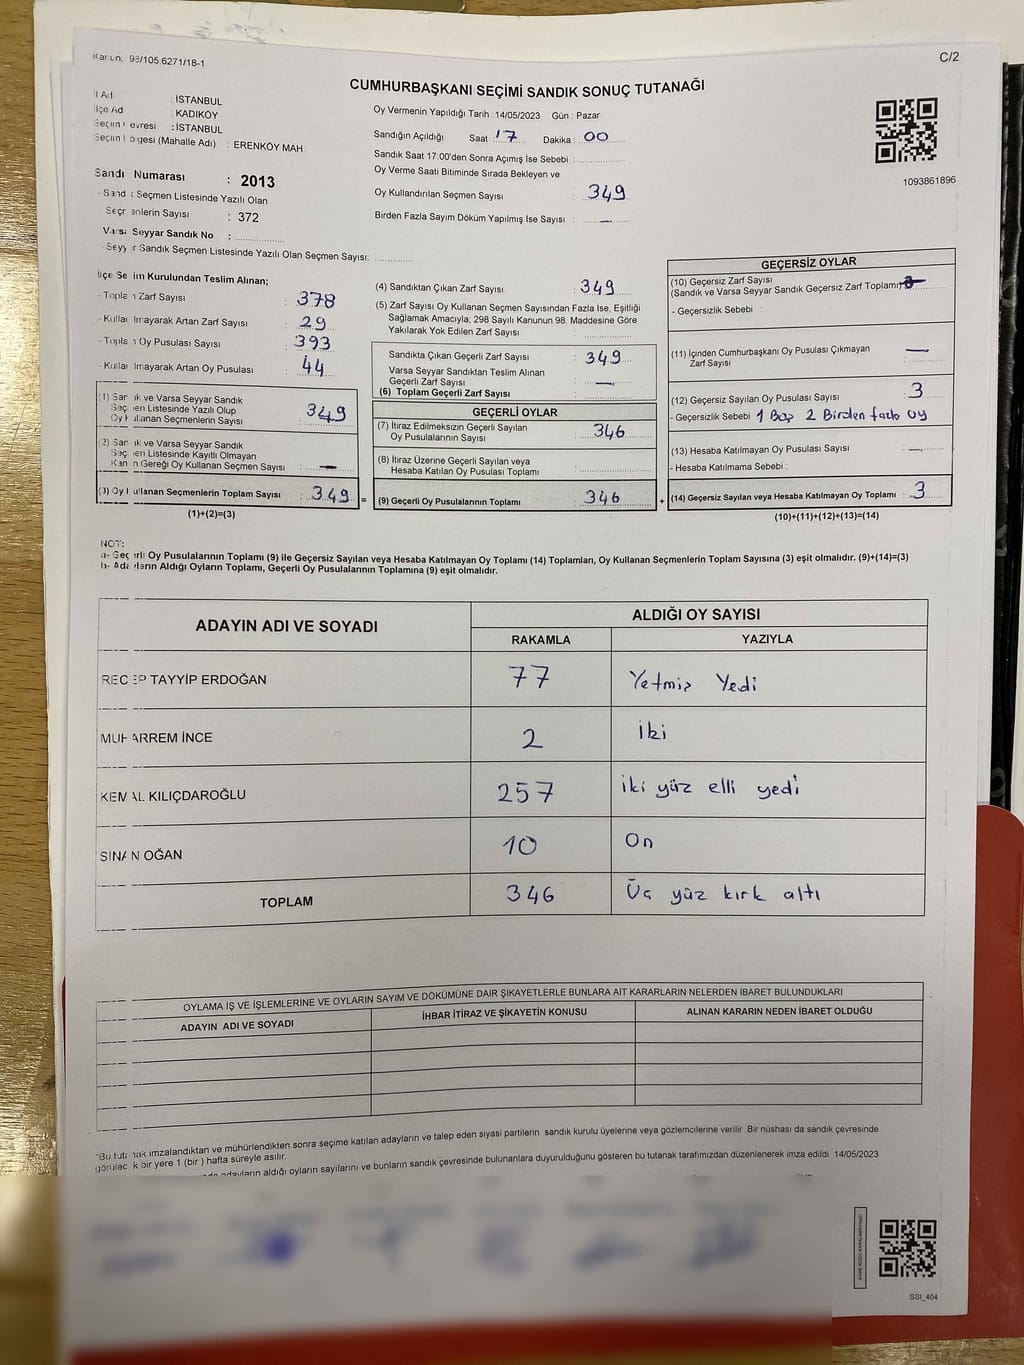 Kanun; 98/105,6271/18-1
C/2
CUMHURBAŞKANI SEÇİMİ SANDIK SONUÇ TUTANAĞI
İl Adı : İSTANBUL
İlçe Adı : KADIKÖY
Seçim Çevresi : İSTANBUL
Seçim Bölgesi (Mahalle Adı) : ERENKÖY MAH.
Sandık Numarası : 2013
- Sandık Seçmen Listesinde Yazılı Olan
Seçmenlerin Sayısı : 372
Varsa Seyyar Sandık No :
- Seyyar Sandık Seçmen Listesinde Yazılı Olan Seçmen Sayısı:
Oy Vermenin Yapıldığı Tarih :14/05/2023 Gün : Pazar
Sandığın Açıldığı Saat 17 Dakika : 00
Sandık Saat 17:00'den Sonra Açımış İse Sebebi :
Oy Verme Saati Bitiminde Sırada Bekleyen ve
Oy Kullandırılan Seçmen Sayısı : 349
Birden Fazla Sayım Döküm Yapılmış İse Sayısı : —
1093861896
İlçe Seçim Kurulundan Teslim Alınan;
- Toplam Zarf Sayısı : 378
- Kullanılmayarak Artan Zarf Sayısı : 29
- Toplam Oy Pusulası Sayısı : 393
- Kullanılmayarak Artan Oy Pusulası : 44
(1) Sandık ve Varsa Seyyar Sandık
Seçmen Listesinde Yazılı Olup
Oy Kullanan Seçmenlerin Sayısı : 349
(2) Sandık ve Varsa Seyyar Sandık
Seçmen Listesinde Kayıtlı Olmayan
Kanun Gereği Oy Kullanan Seçmen Sayısı : —
(3) Oy Kullanan Seçmenlerin Toplam Sayısı : 349 =
(1)+(2)=(3)
(4) Sandıktan Çıkan Zarf Sayısı : 349
(5) Zarf Sayısı Oy Kullanan Seçmen Sayısından Fazla İse, Eşitliği
Sağlamak Amacıyla; 298 Sayılı Kanunun 98. Maddesine Göre
Yakılarak Yok Edilen Zarf Sayısı :
Sandıkta Çıkan Geçerli Zarf Sayısı : 349
Varsa Seyyar Sandıktan Teslim Alınan
Geçerli Zarf Sayısı : —
(6) Toplam Geçerli Zarf Sayısı :
GEÇERLİ OYLAR
(7) İtiraz Edilmeksizin Geçerli Sayılan
Oy Pusulalarının Sayısı : 346
(8) İtiraz Üzerine Geçerli Sayılan veya
Hesaba Katılan Oy Pusulası Toplamı :
(9) Geçerli Oy Pusulalarının Toplamı : 346 +
GEÇERSİZ OYLAR
(10) Geçersiz Zarf Sayısı
(Sandık ve Varsa Seyyar Sandık Geçersiz Zarf Toplamı)
- Geçersizlik Sebebi :
(11) İçinden Cumhurbaşkanı Oy Pusulası Çıkmayan
Zarf Sayısı : —
(12) Geçersiz Sayılan Oy Pusulası Sayısı : 3
- Geçersizlik Sebebi 1 Boş 2 Birden fazla oy
(13) Hesaba Katılmayan Oy Pusulası Sayısı : —
- Hesaba Katılmama Sebebi :
(14) Geçersiz Sayılan veya Hesaba Katılmayan Oy Toplamı : 3
(10)+(11)+(12)+(13)=(14)
NOT:
a- Geçerli Oy Pusulalarının Toplamı (9) ile Geçersiz Sayılan veya Hesaba Katılmayan Oy Toplamı (14) Toplamları, Oy Kullanan Seçmenlerin Toplam Sayısına (3) eşit olmalıdır. (9)+(14)=(3)
b- Adayların Aldığı Oyların Toplamı, Geçerli Oy Pusulalarının Toplamına (9) eşit olmalıdır.
ADAYIN ADI VE SOYADI
ALDIĞI OY SAYISI
RAKAMLA YAZIYLA
RECEP TAYYİP ERDOĞAN 77 Yetmiş Yedi
MUHARREM İNCE 2 İki
KEMAL KILIÇDAROĞLU 257 iki yüz elli yedi
SİNAN OĞAN 10 On
TOPLAM 346 Üç yüz kırk altı
OYLAMA İŞ VE İŞLEMLERİNE VE OYLARIN SAYIM VE DÖKÜMÜNE DAİR ŞİKAYETLERLE BUNLARA AİT KARARLARIN NELERDEN İBARET BULUNDUKLARI
ADAYIN ADI VE SOYADI İHBAR İTİRAZ VE ŞİKAYETİN KONUSU ALINAN KARARIN NEDEN İBARET OLDUĞU
"Bu tutanak imzalandıktan ve mühürlendikten sonra seçime katılan adayların ve talep eden siyasi partilerin sandık kurulu üyelerine veya gözlemcilerine verilir .Bir nüshası da sandık çevresinde
görülecek bir yere 1 (bir ) hafta süreyle asılır.
adayların aldığı oyların sayılarını ve bunların sandık çevresinde bulunanlara duyurulduğunu gösteren bu tutanak tarafımızdan düzenlenerek imza edildi. 14/05/2023
SSI_404